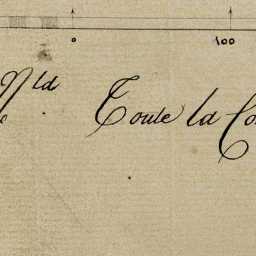 0 100
Nta Toute la Co